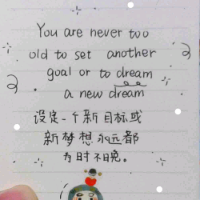 You are never too
old to set another
goal or to dream
a new dream
设定一个新目标或
新梦想永远都
为时不晚。